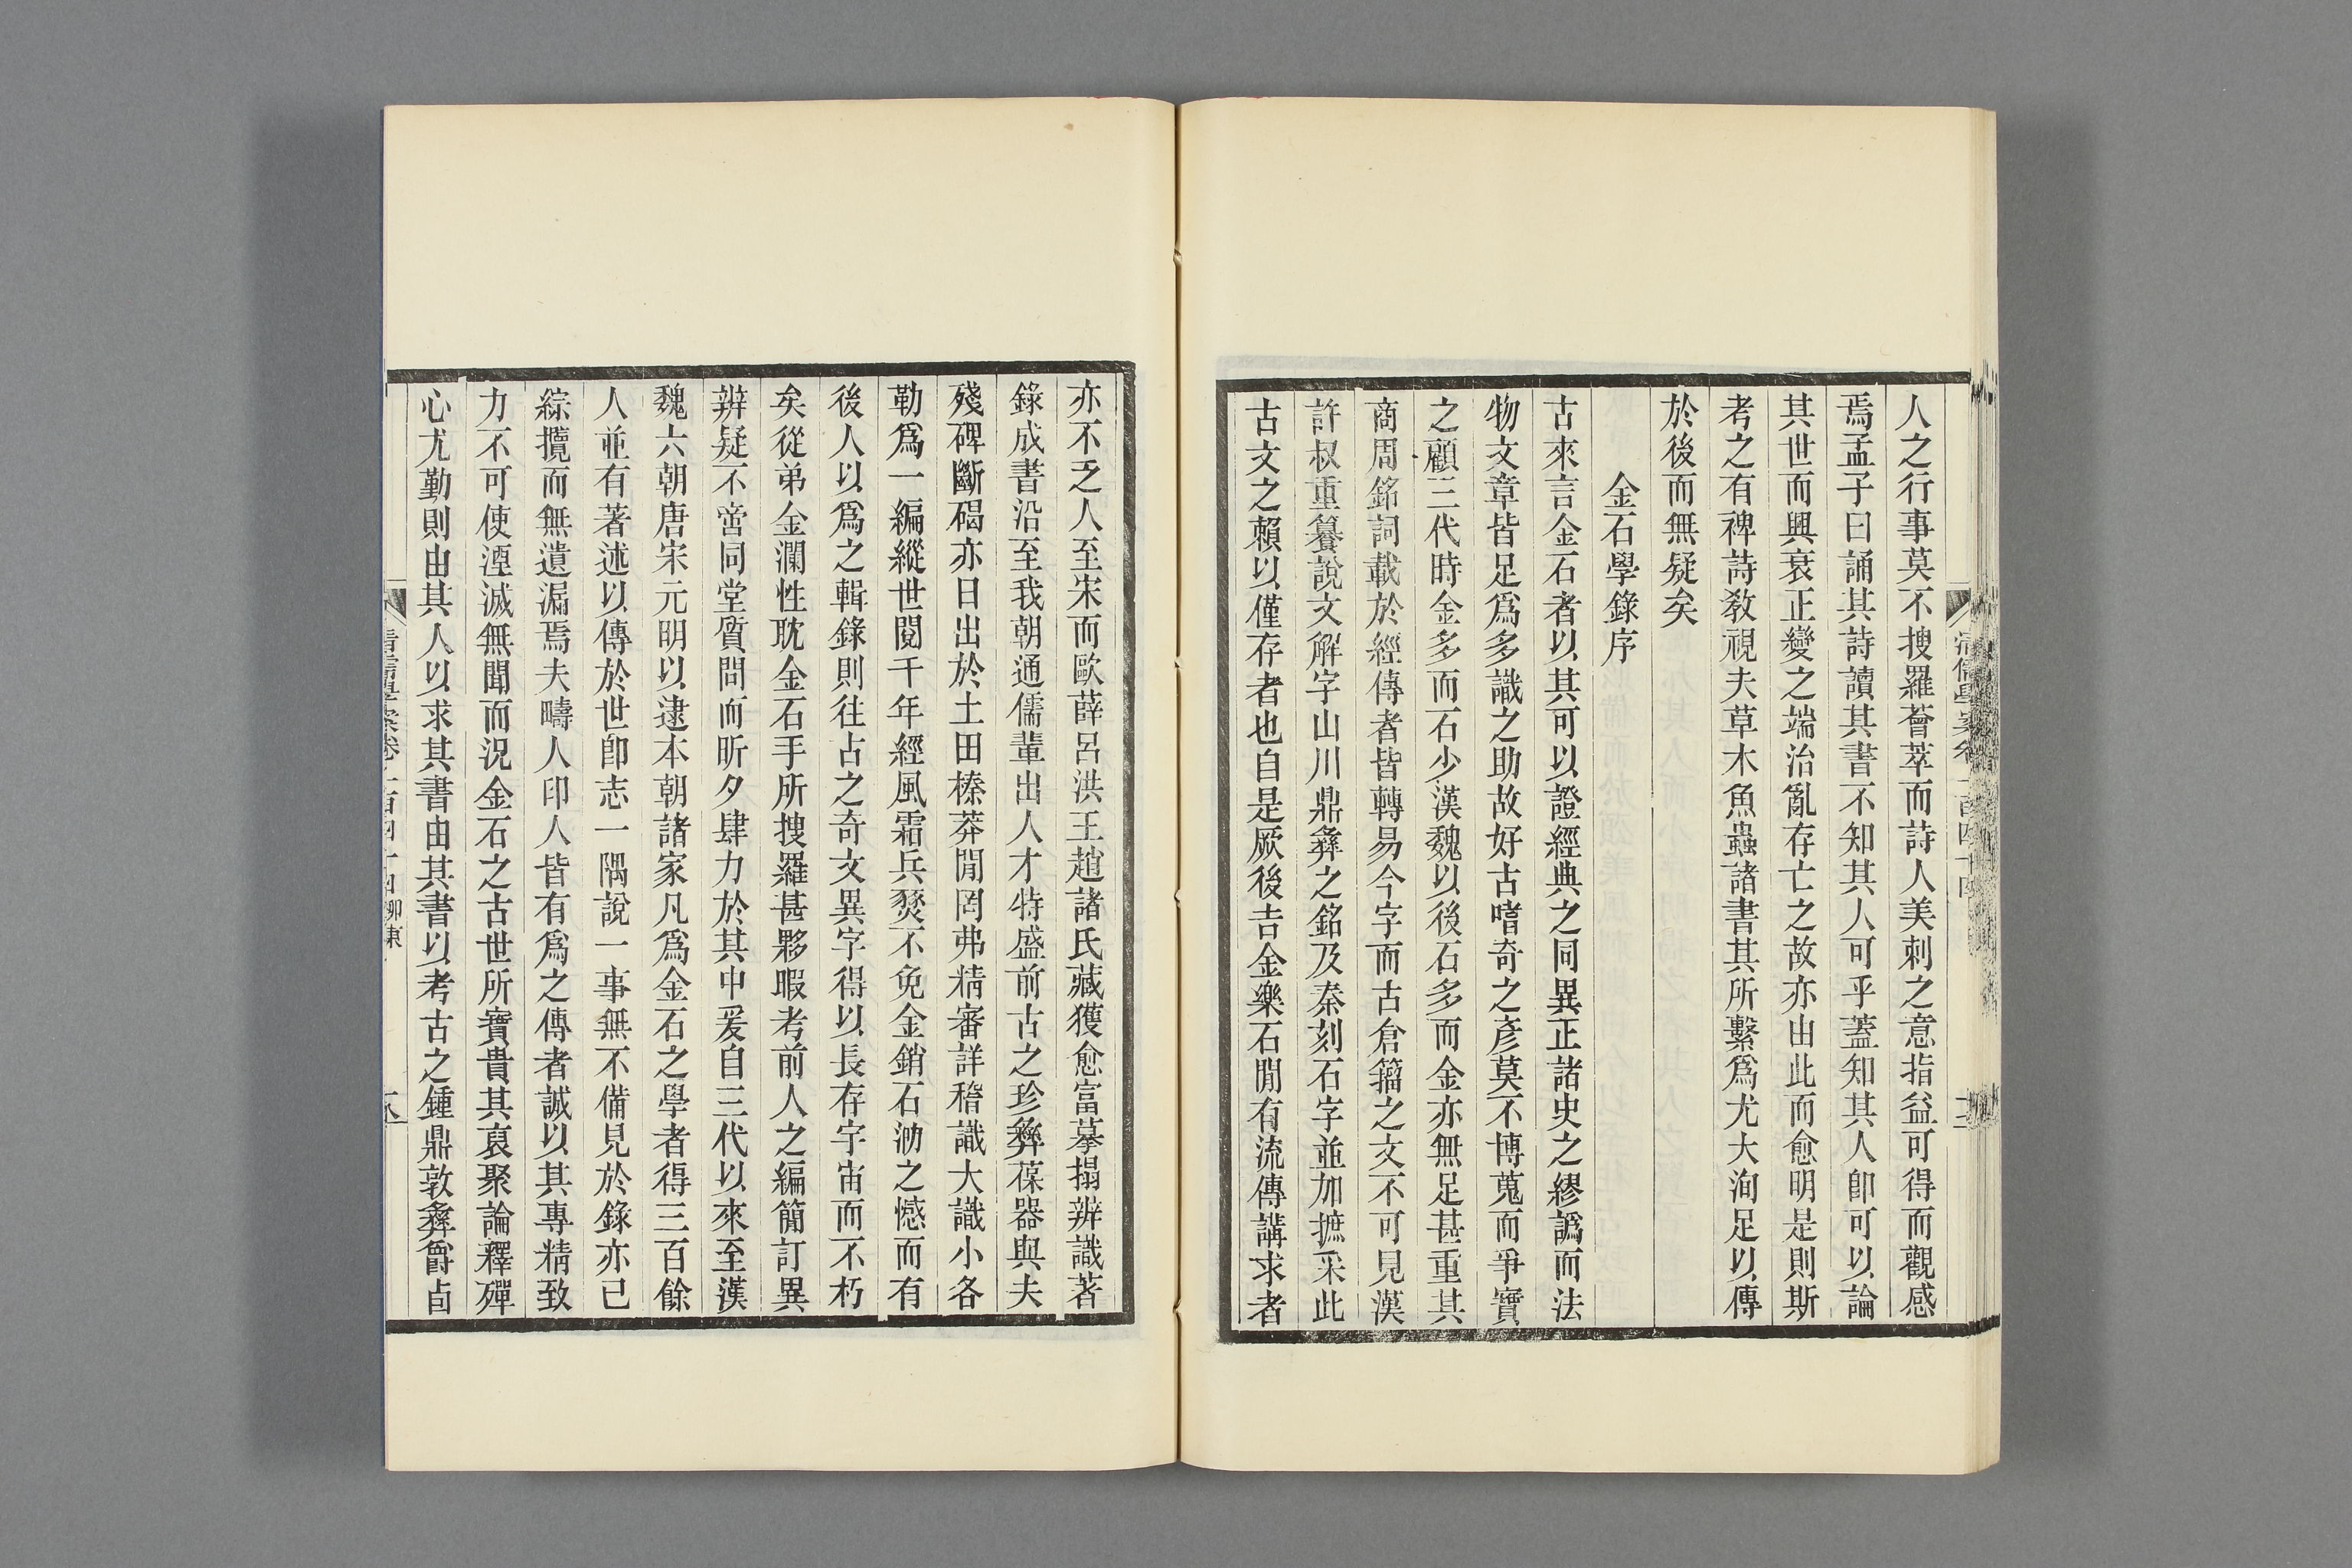 人之行事莫不搜羅薈萃而詩人美刺之意指益可得而觀感
焉孟子曰誦其詩讀其書不知其人可乎蓋知其人卽可以論
其世而興衰正變之端治亂存亡之故亦由此而愈明是則斯
考之有裨詩敎視夫草木魚蟲諸書其所繫爲尤大洵足以傳
於後而無疑矣
金石學錄序
古來言金石者以其可以證經典之同異正諸史之繆譌而法
物文章皆足爲多識之助故好古嗜奇之彥莫不博蒐而爭寶
之顧三代時金多而石少漢魏以後石多而金亦無足甚重其
商周銘詞載於經傳者皆轉易今字而古倉籀之文不可見漢
許叔重纂說文解字山川鼎彝之銘及秦刻石字並加摭采此
古文之賴以僅存者也自是厥後吉金樂石閒有流傳講求者
亦不乏人至宋而歐薛呂洪王趙諸氏藏獲愈富摹搨辨識著
錄成書沿至我朝通儒輩出人才特盛前古之珍彝葆器與夫
殘碑斷碣亦日出於土田榛莽閒罔弗精審詳稽識大識小各
勒爲一編縱世閱千年經風霜兵燹不免金銷石泐之憾而有
後人以爲之輯錄則往占之奇文異字得以長存宇宙而不朽
矣從弟金瀾性耽金石手所搜羅甚夥暇考前人之編簡訂異
辨疑不啻同堂質問而昕夕肆力於其中爰自三代以來至漢
魏六朝唐宋元明以逮本朝諸家凡爲金石之學者得三百餘
人並有著述以傳於世卽志一隅說一事無不備見於錄亦已
綜攬而無遺漏焉夫疇人印人皆有爲之傳者誠以其專精致
力不可使湮滅無聞而況金石之古世所寶貴其裒聚論釋殫
心尤勤則由其人以求其書由其書以考古之鍾鼎敦彝爵卣